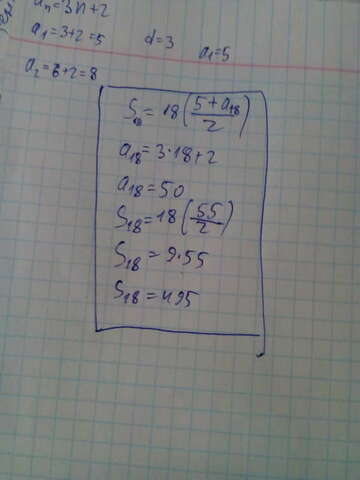 aₙ=3n+2
a₁=3+2=5 d=3 a₁=5
a₂=6+2=8
S₁₈=18(5+a₁₈/2)
a₁₈=3·18+2
a₁₈=50
S₁₈=18(55/2)
S₁₈=9·55
S₁₈=495